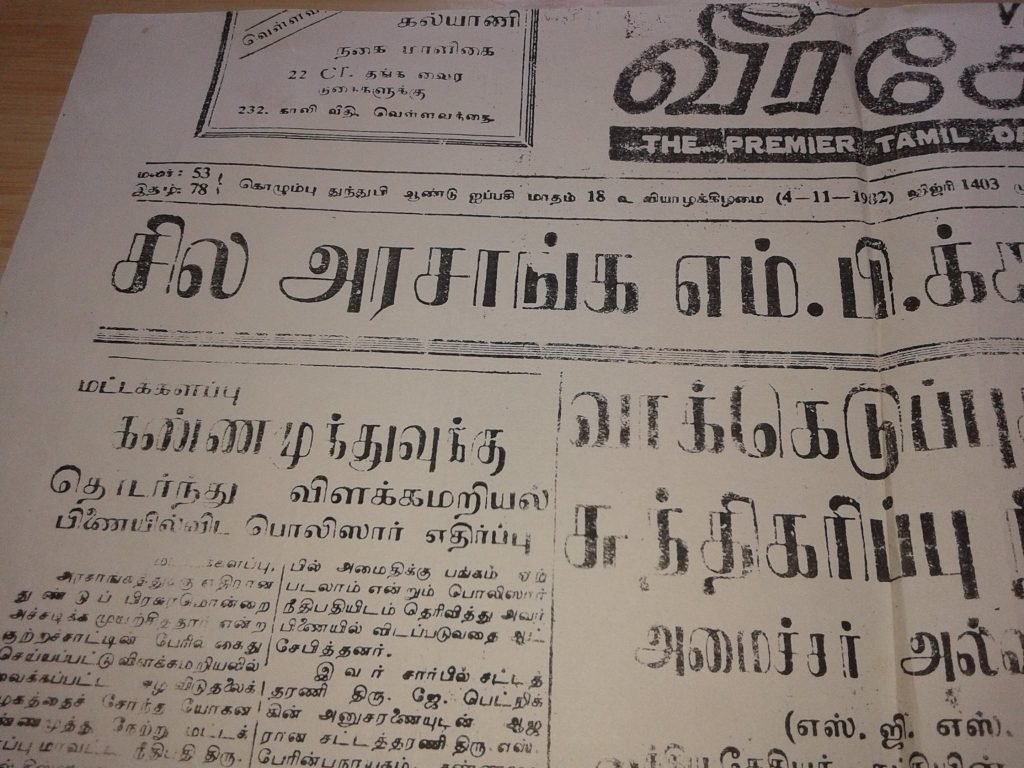 வெள்ளவ
கல்யாணி
நகை மாளிகை
22 CT. தங்க வைர
நகைகளுக்கு
232. காலி வீதி. வெள்ளவத்தை
வீரகே
THE PREMIER TAMIL
மலர்: 53
இதழ்: 78
கொழும்பு துந்துபி ஆண்டு ஐப்பசி மாதம் 18 உ வியாழக்கிழமை (4—11—1982) ஹிஜ்ரி 1403
சில அரசாங்க எம்.பி.க்க
மட்டக்களப்பு
கண்ணமுத்துவுக்கு
தொடர்ந்து விளக்கமறியல்
பிணையில்விட பொலிஸார் எதிர்ப்பு
மட்டக்களப்பு,
அரசாங்கத்துக்கு எதிரான
துண்டுப் பிரசுரமொன்றை
அச்சடிக்க முயற்சித்தார் என்ற
குற்றச்சாட்டின் பேரில் கைது
செய்யப்பட்டு விளக்கமறியலில்
வைக்கப்பட்ட விடுதலைக்
சோந்த யோகன
நேற்று மட்டக்
மாவட்ட நீதிபதி திரு.
பில் அமைதிக்கு பங்கம் ஏற்
படலாம் என்றும் பொலிஸார்
நீதிபதியிடம் தெரிவித்து அவர்
பிணையில் விடப்படுவதை ஆட்
சேபித்தனர்.
இவர் சார்பில் சட்டத்
தரணி திரு. ஜே. பெட்ரிக்
கின் அனுசரணையுடன் ஆஜ
ரான சட்டத்தரணி திரு. எஸ்.
பேரின்பநாயகம்,
வாக்கெடுப்பு
சுத்திகரிப்பு
அமைச்சர் அல்
(எஸ். ஜி. எஸ்.